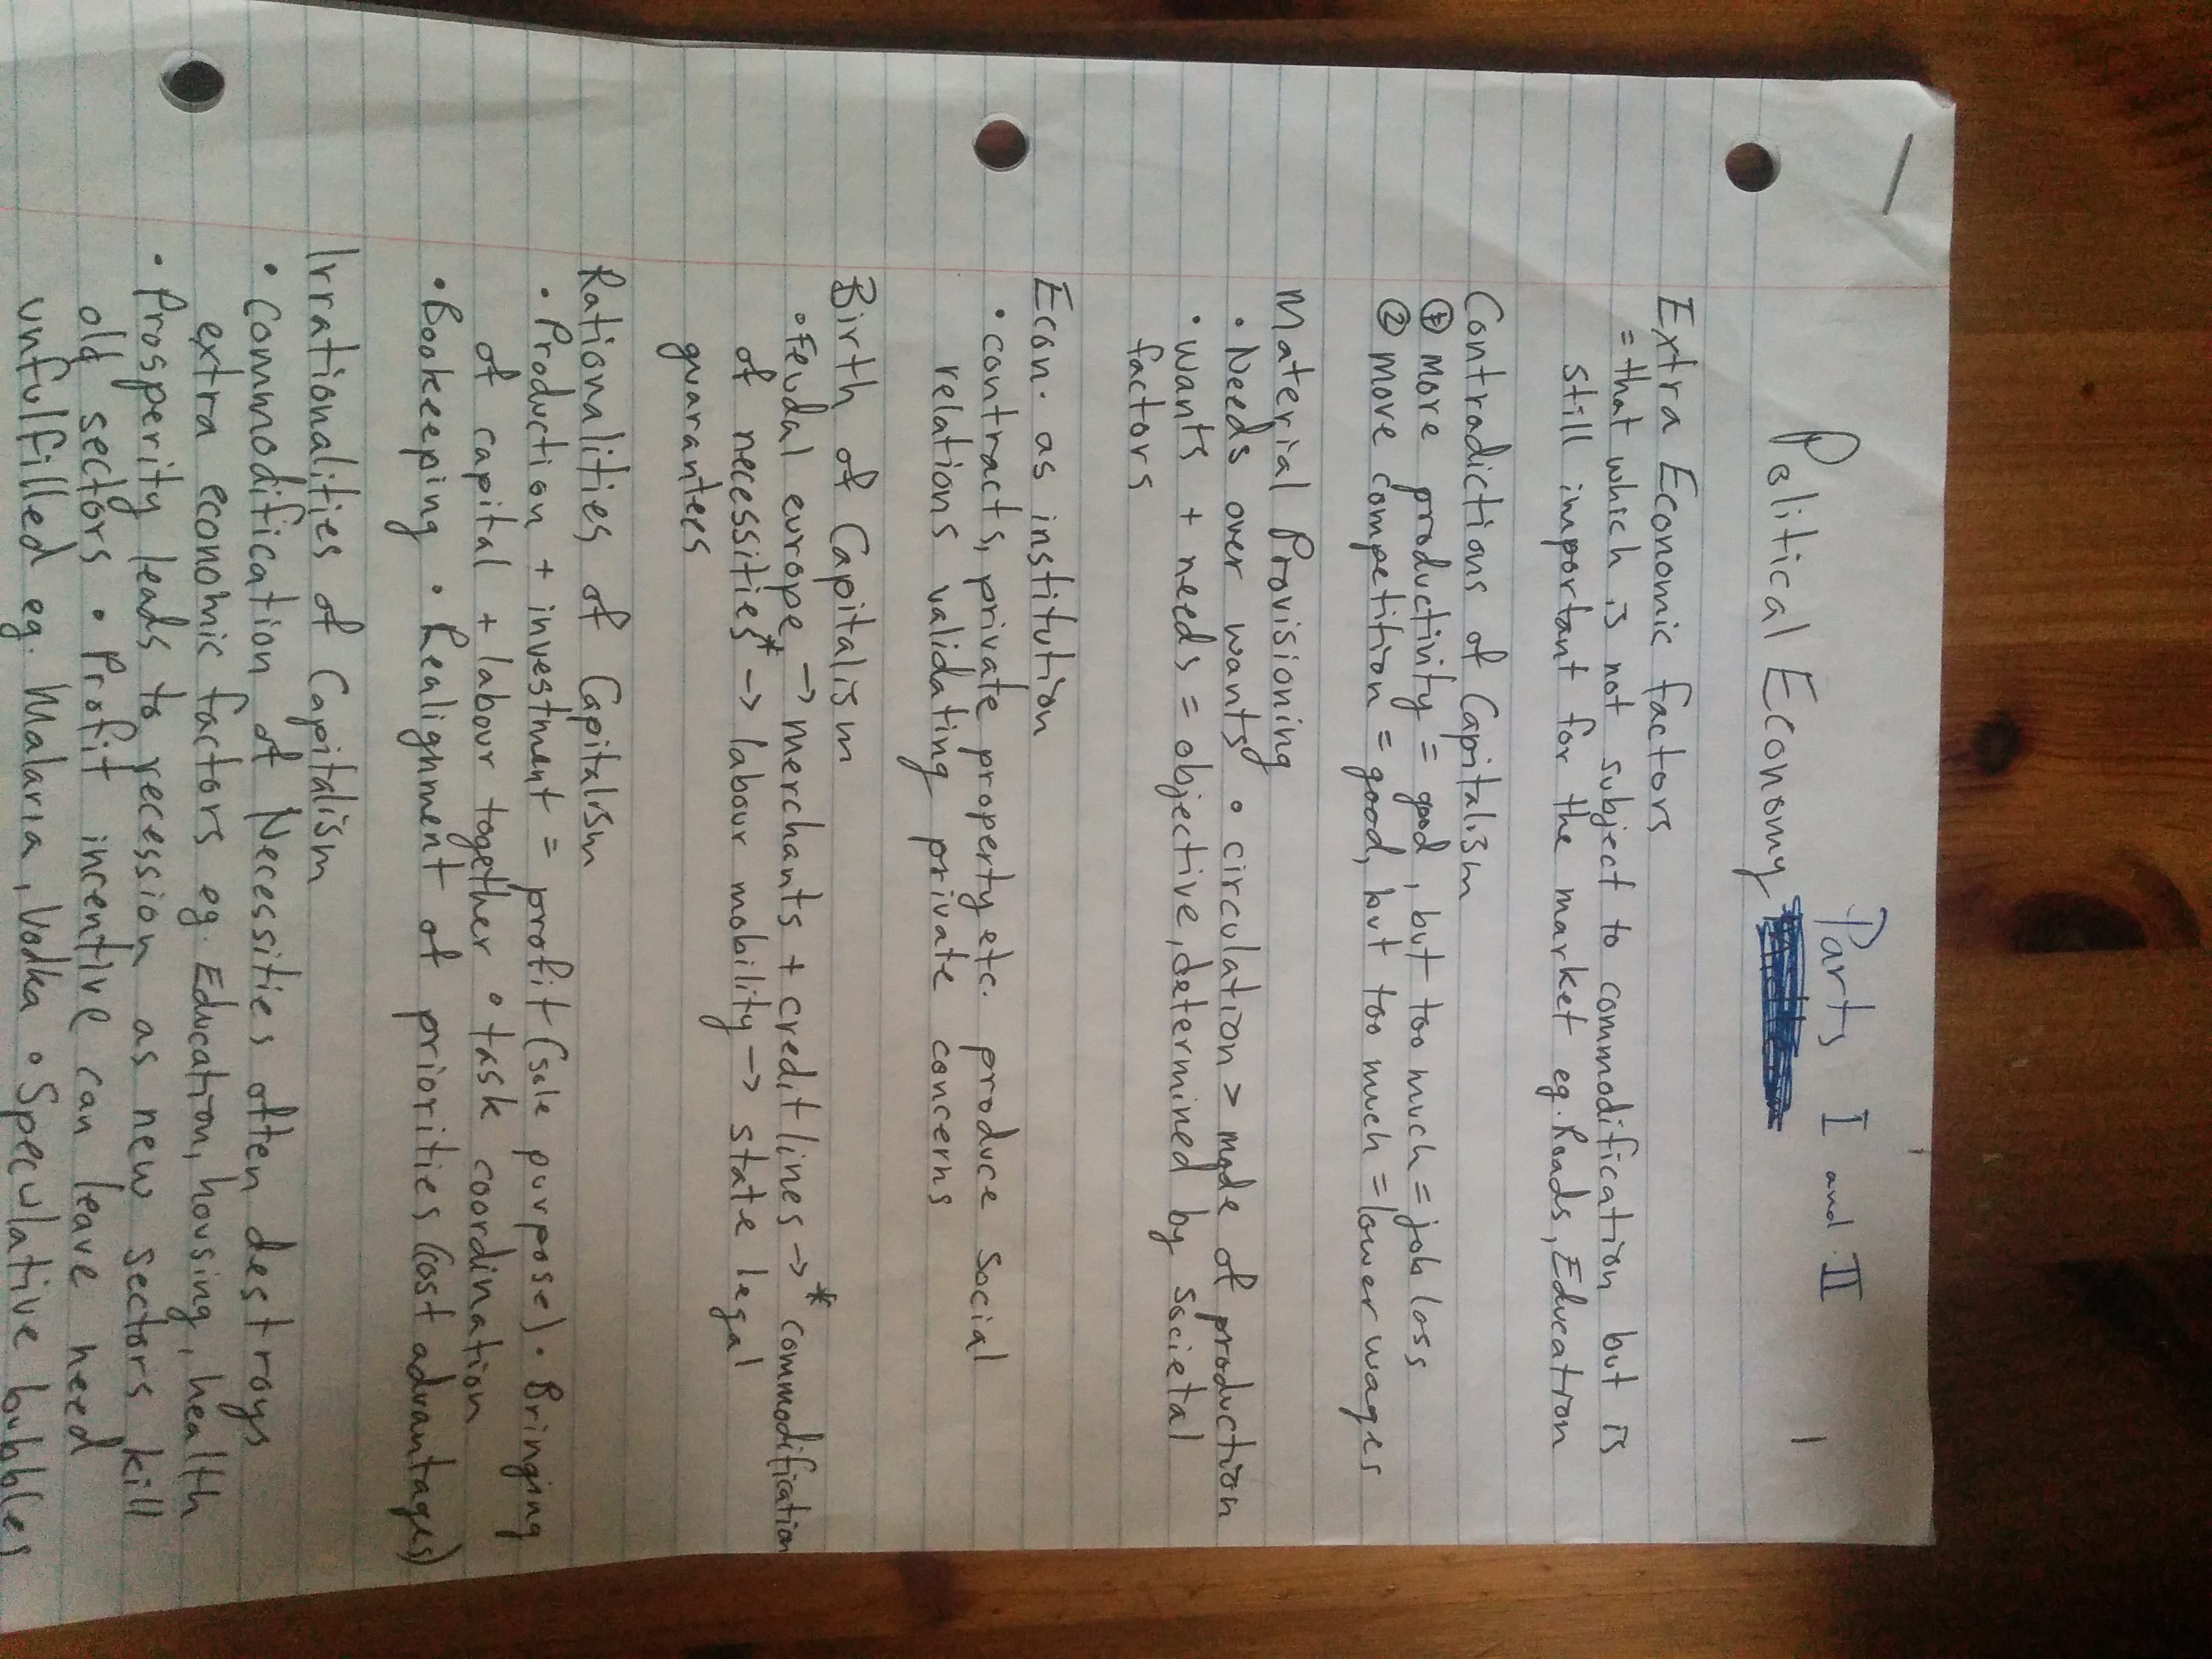 Parts I and II
1
Political Economy
Extra Economic factors
= that which is not subject to commodification but is
still important for the market eg. Roads, Education
Contradictions of Capitalism
① more productivity = good, but too much = job loss
② more competition = good, but too much = lower wages
Material Provisioning
• Needs over wants • circulation > mode of production
• wants + needs = objective, determined by societal
factors
Econ. as institution
• contracts, private property etc. produce social
relations validating private concerns
Birth of Capitalism
• Feudal europe → merchants + credit lines → * commodification
of necessities* → labour mobility → state legal
guarantees
Rationalities of Capitalism
• Production + investment = profit (sole purpose) • Bringing
of capital + labour together • task coordination
• Bookeeping • Realignment of priorities (cost advantages)
Irrationalities of Capitalism
• Commodification of Necessities often destroys
extra economic factors eg. Education, housing, health
• Prosperity leads to recession as new sectors kill
old sectors • Profit incentive can leave need
unfulfilled eg. Malaria, Vodka • Speculative bubbles